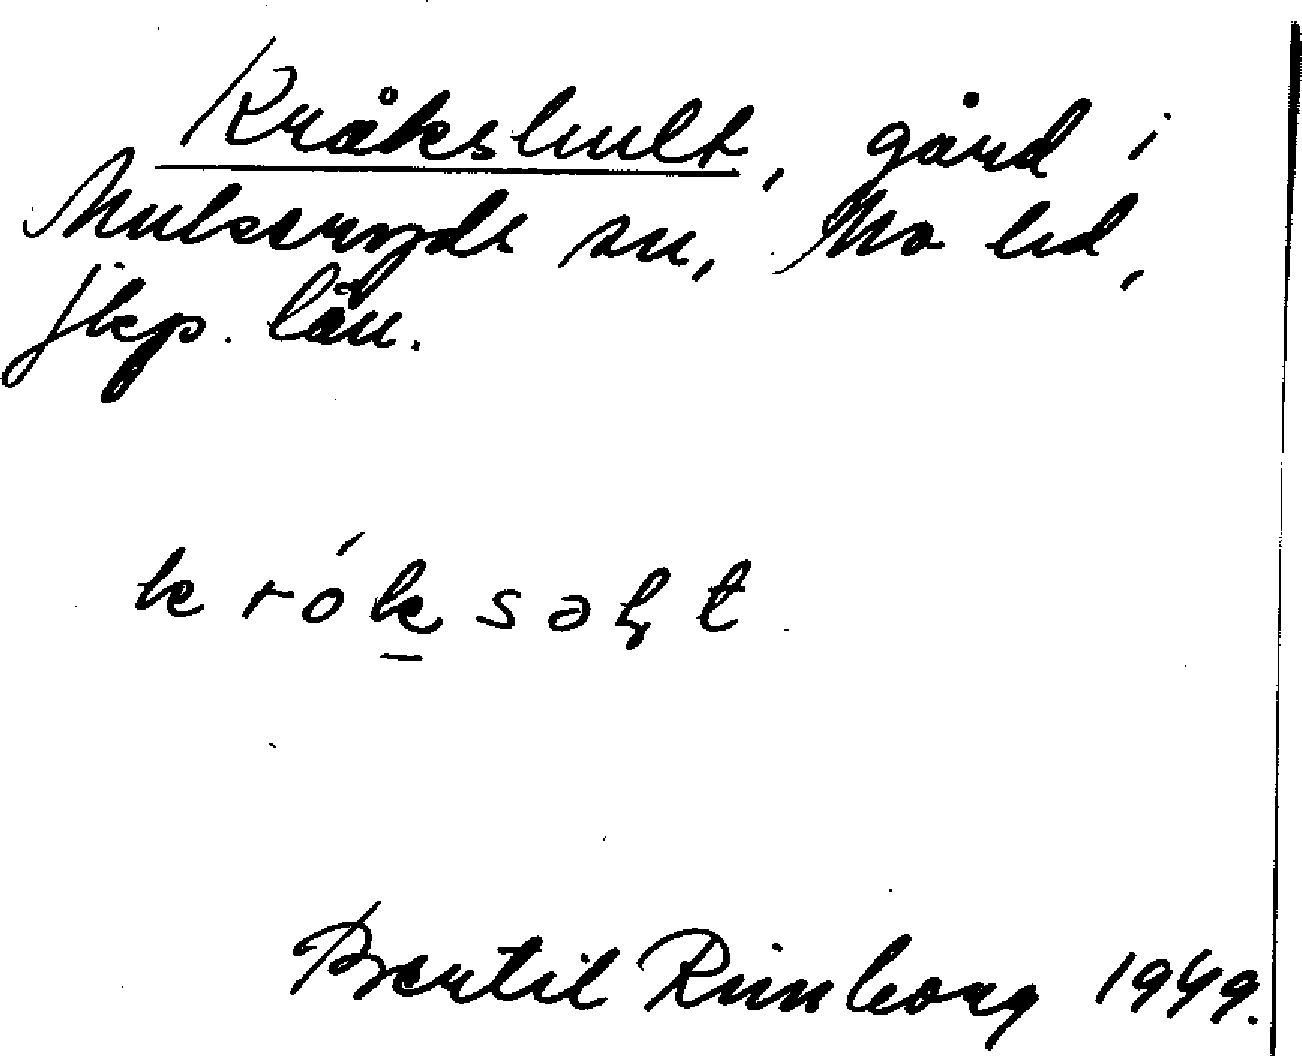 Kråkshult, gård i
Mulseryds sn, Mo hd,
Jkp. län.
krók səlt
Bertil Rimborg 1949.